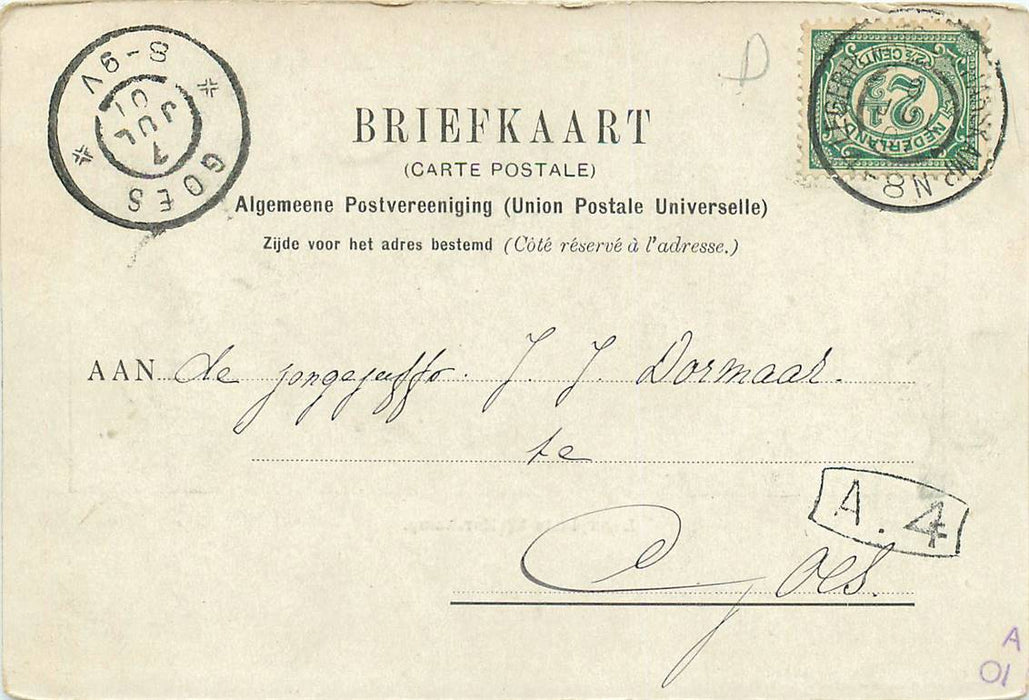 GOES
8-9V
7
JUL
01
D
2½ CENT
NEDERLAND
2½
N8
BRIEFKAART
(CARTE POSTALE)
Algemeene Postvereeniging (Union Postale Universelle)
Zijde voor het adres bestemd (Côté réservé à l'adresse.)
AAN de jongejuffr. J. J. Dormaar.
te
Goes.
A. 4
A
01